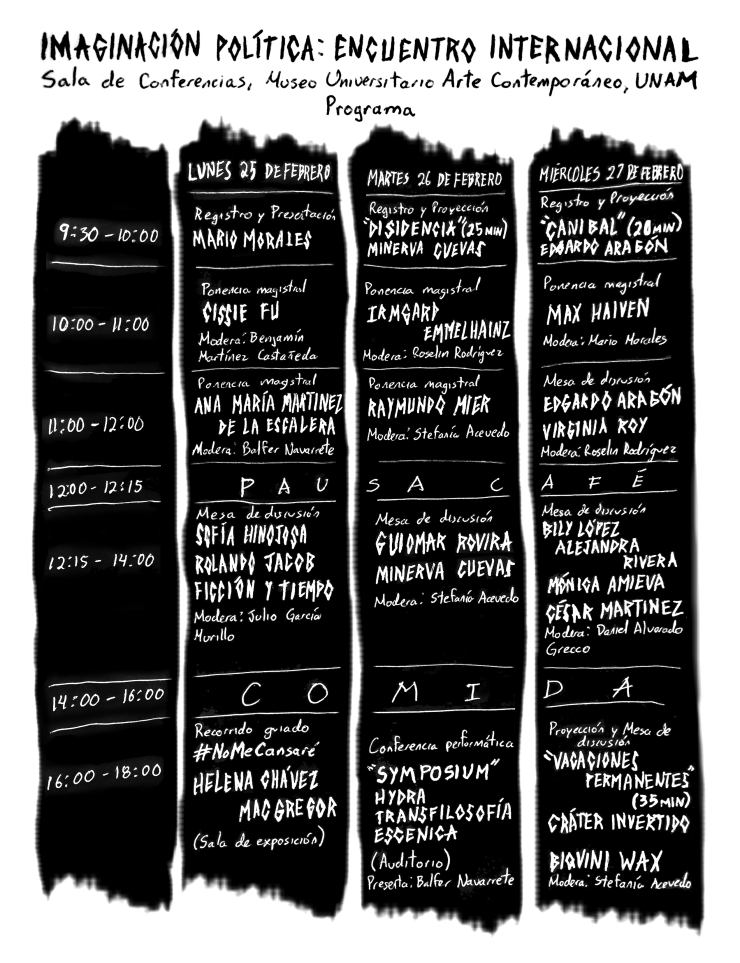 IMAGINACIÓN POLÍTICA: ENCUENTRO INTERNACIONAL
Sala de Conferencias, Museo Universitario Arte Contemporáneo, UNAM
Programa
LUNES 25 DE FEBRERO
MARTES 26 DE FEBRERO
MIÉRCOLES 27 DE FEBRERO
9:30 - 10:00
Registro y Presentación
MARIO MORALES
Registro y Proyección
"DISIDENCIA" (25 MIN)
MINERVA CUEVAS
Registro y Proyección
"CANIBAL" (20 MIN)
EDGARDO ARAGÓN
10:00 - 11:00
Ponencia magistral
CISSIE FU
Modera: Benjamín
Martínez Castañeda
Ponencia magistral
IRMGARD
EMMELHAINZ
Modera: Roselin Rodríguez
Ponencia magistral
MAX HAIVEN
Modera: Mario Morales
11:00 - 12:00
Ponencia magistral
ANA MARÍA MARTINEZ
DE LA ESCALERA
Modera: Balfer Navarrete
Ponencia magistral
RAYMUNDO MIER
Modera: Stefanía Acevedo
Mesa de discusión
EDGARDO ARAGÓN
VIRGINIA ROY
Modera: Roselin Rodríguez
12:00 - 12:15
PAUSA CAFÉ
12:15 - 14:00
Mesa de discusión
SOFÍA HINOJOSA
ROLANDO JACOB
FICCIÓN Y TIEMPO
Modera: Julio García
Murillo
Mesa de discusión
GUIOMAR ROVIRA
MINERVA CUEVAS
Modera: Stefanía Acevedo
Mesa de discusión
BILY LÓPEZ
ALEJANDRA
RIVERA
MÓNICA AMIEVA
CÉSAR MARTINEZ
Modera: Daniel Alvarado
Grecco
14:00 - 16:00
COMIDA
16:00 - 18:00
Recorrido guiado
#NoMeCansaré
HELENA CHÁVEZ
MAC GREGOR
(Sala de exposición)
Conferencia performática
"SYMPOSIUM"
HYDRA
TRANSFILOSOFÍA
ESCENICA
(Auditorio)
Presenta: Balfer Navarrete
Proyección y Mesa de
discusión
"VACACIONES
PERMANENTES"
(35 MIN)
CRÁTER INVERTIDO
BIQUINI WAX
Modera: Stefanía Acevedo